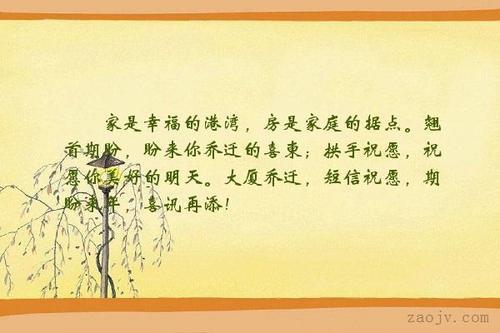 家是幸福的港湾，房是家庭的据点。翘
首期盼，盼来你乔迁的喜柬；拱手祝愿，祝
愿你美好的明天。大厦乔迁，短信祝愿，期
盼来年，喜讯再添！
zaojv.com